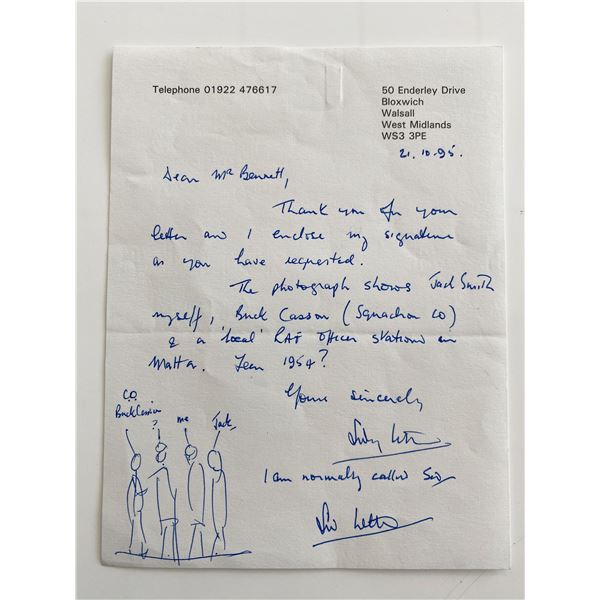 Telephone 01922 476617
50 Enderley Drive
Bloxwich
Walsall
West Midlands
WS3 3PE
21.10.95.
Dear Mr Bennett,
Thank you for your
letter and I enclose my signature
as you have requested.
The photograph shows Jack Smith
myself, Buck Casson (Squadron CO)
& a 'local' RAF officer stationed in
Malta. Year 1954?
Yours sincerely
I am normally called Sid
Sid
C.O.
Buck Casson
?
me
Jack